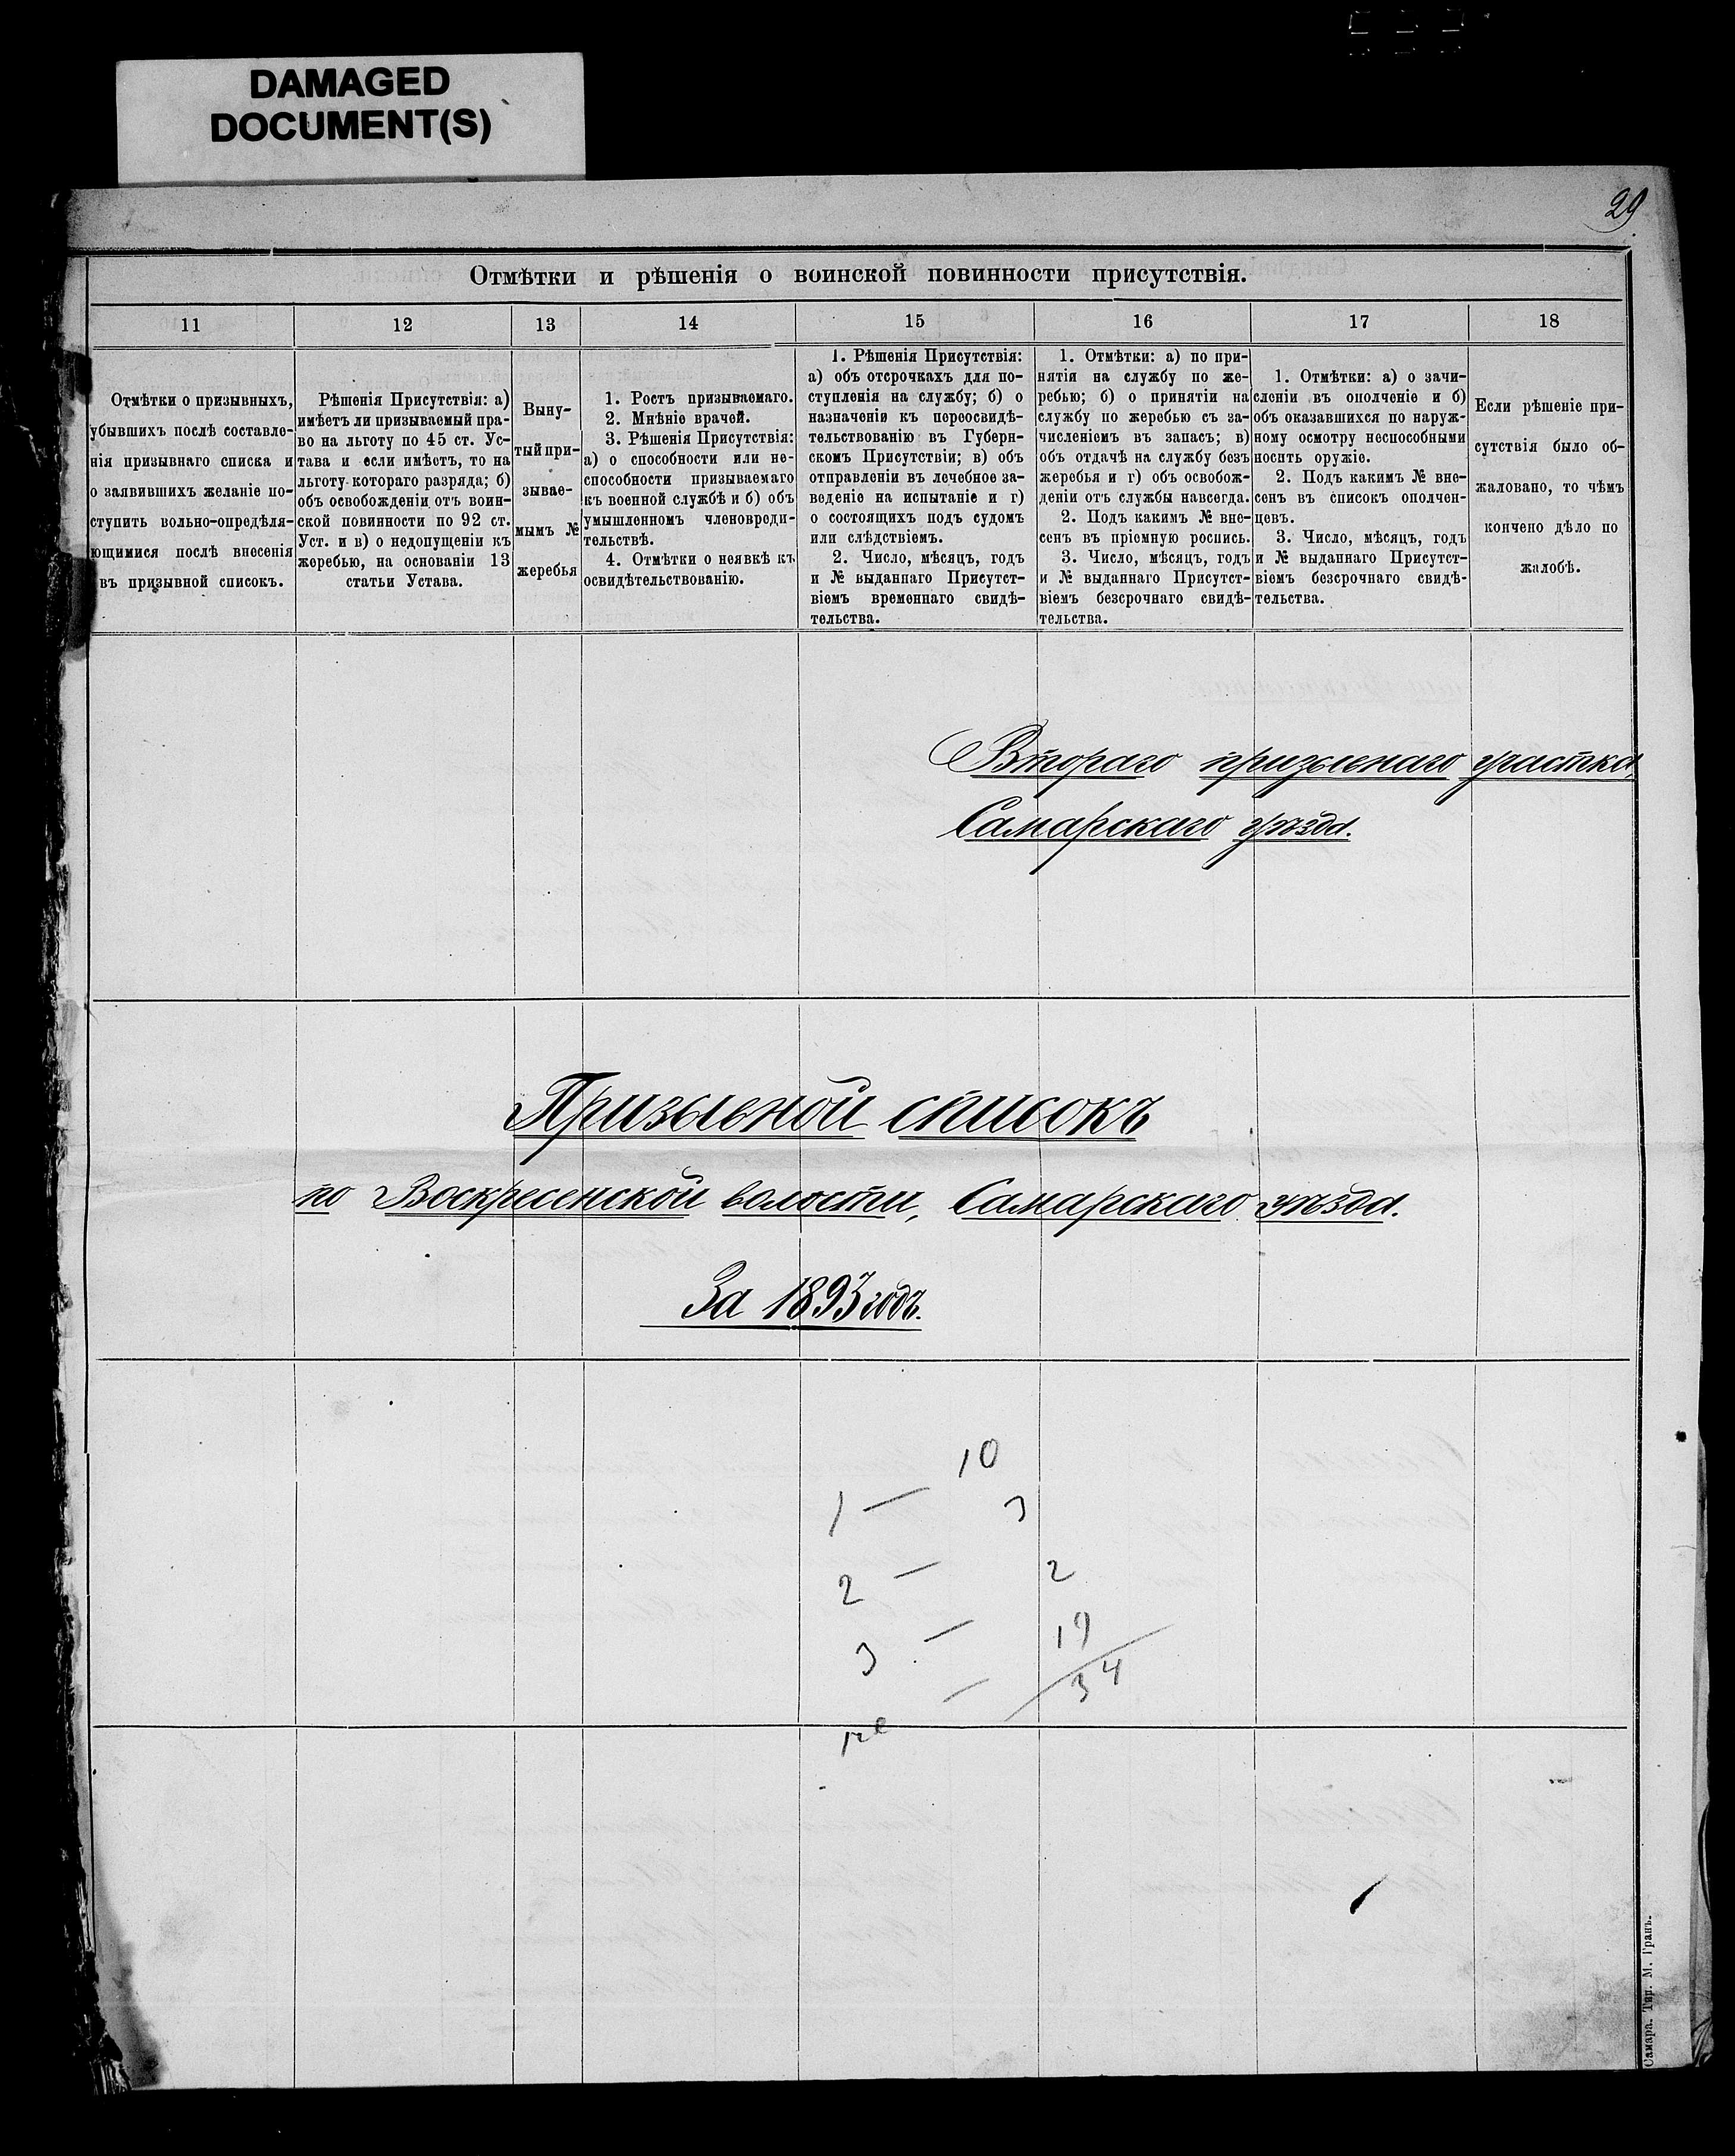 DAMAGED
DOCUMENT(S)
29.
Отмѣтки и рѣшенія о воинской повинности присутствія.
11 12 13 14 15 16 17 18
Отмѣтки о призывныхъ,
убывшихъ послѣ составле-
нія призывнаго списка и
о заявившихъ желаніе по-
ступить вольно-опредѣля-
ющимися послѣ внесенія
въ призывной список.
Рѣшенія Присутствія: а)
имѣетъ ли призываемый пра-
во на льготу по 45 ст. Ус-
тава и если имѣетъ, то на
льготу котораго разряда; б)
объ освобожденіи отъ воин-
ской повинности по 92 ст.
Уст. и в) о недопущеніи къ
жеребью, на основаніи 13
статьи Устава.
Выну-
тый при-
зывае-
мымъ №
жеребья
1. Ростъ призываемаго.
2. Мнѣніе врачей.
3. Рѣшенія Присутствія:
а) о способности или не-
способности призываемаго
къ военной службѣ и б) объ
умышленномъ членовреди-
тельствѣ.
4. Отмѣтки о неявкѣ къ
освидѣтельствованію.
1. Рѣшенія Присутствія:
а) объ отсрочкахъ для по-
ступленія на службу; б) о
назначеніи къ переосвидѣ-
тельствованію въ Губерн-
скомъ Присутствіи; в) объ
отправленіи въ лечебное за-
веденіе на испытаніе и г)
о состоящихъ подъ судомъ
или слѣдствіемъ.
2. Число, мѣсяцъ, годъ
и № выданнаго Присутст-
віемъ временнаго свидѣ-
тельства.
1. Отмѣтки: а) по при-
нятія на службу по же-
ребью; б) о принятіи на
службу по жеребью съ за-
численіемъ въ запасъ; в)
объ отдачѣ на службу безъ
жеребья и г) объ освобож-
деніи отъ службы навсегда.
2. Подъ какимъ № вне-
сенъ въ пріемную роспись.
3. Число, мѣсяцъ, годъ
и № выданнаго Присутст-
віемъ безсрочнаго свидѣ-
тельства.
1. Отмѣтки: а) о зачи-
сленіи въ ополченіе и б)
объ оказавшихся по наруж-
ному осмотру неспособными
носить оружіе.
2. Подъ какимъ № вне-
сенъ въ списокъ ополчен-
цевъ.
3. Число, мѣсяцъ, годъ
и № выданнаго Присутст-
віемъ безсрочнаго свидѣ-
тельства.
Если рѣшеніе при-
сутствія было об-
жаловано, то чѣмъ
кончено дѣло по
жалобѣ.
Втораго призывнаго участка,
Самарскаго уѣзда.
Призывной списокъ
по Воскресенской волости, Самарскаго уѣзда.
За 1893 годъ.
1 — 10
2 — 3
3 — 2
не — 19
34
Самара. Тип. М. Гранъ.